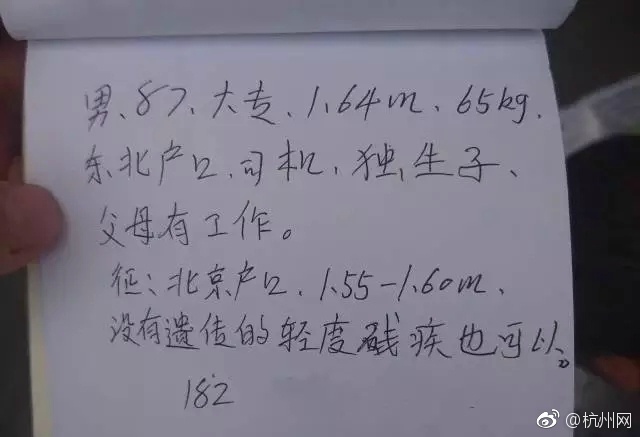 男、87、大专、1.64m、65kg、
东北户口、司机、独生子、
父母有工作。
征：北京户口、1.55-1.60m、
没有遗传的轻度残疾也可以。
182
@杭州网